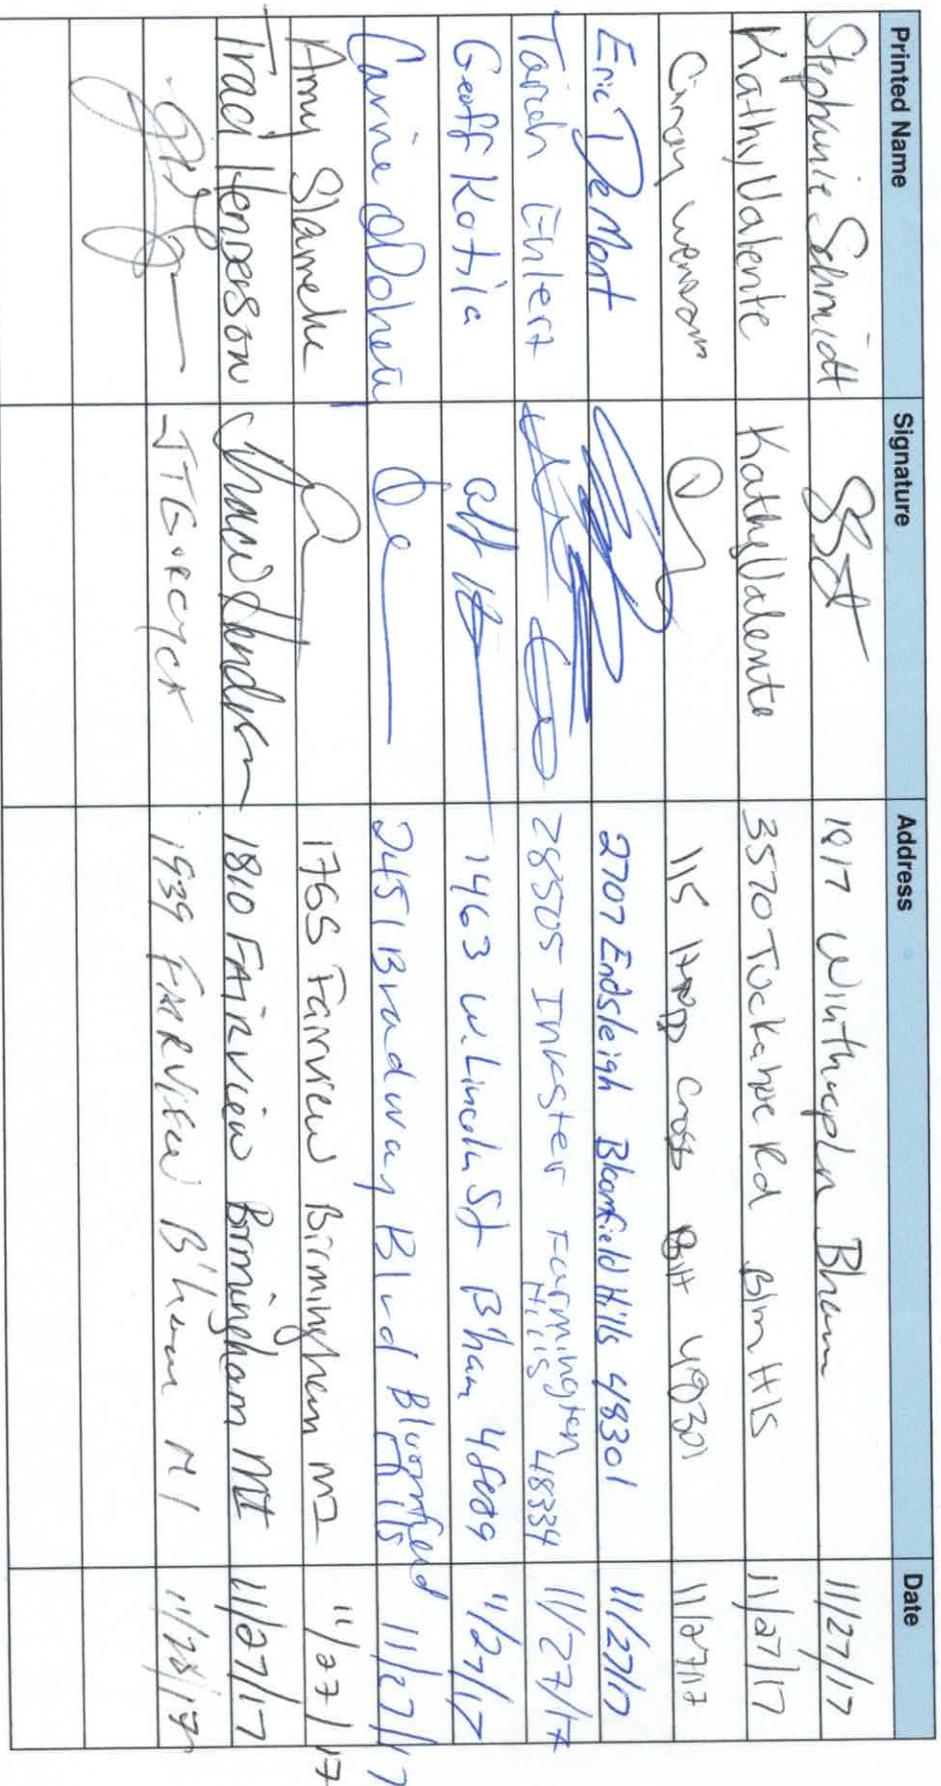 Printed Name Signature Address Date
Stephanie Schmidt 1817 Winthrop Ln Bham 11/27/17
Kathy Valente Kathy Valente 3570 Tuckahoe Rd Blm Hls 11/27/17
Cindy 115 Cross 48301 11/27/17
Eric DeMont 2707 Endsleigh Bloomfield Hills 48301 11/27/17
Ehlert 28505 Inkster Farmington Hills 48334 11/27/17
Geoff Kotila 1463 W. Lincoln St B'ham 48009 11/27/17
Carrie Doheny 2451 Bradway Blvd Bloomfield Hills 11/27/17
Amy 1755 Fairview Birmingham MI 11/27/17
Traci Henderson Traci Henderson 1810 FAIRVIEW Birmingham MI 11/27/17
JT GORCYCA 1939 FAIRVIEW B'ham MI 11/28/17